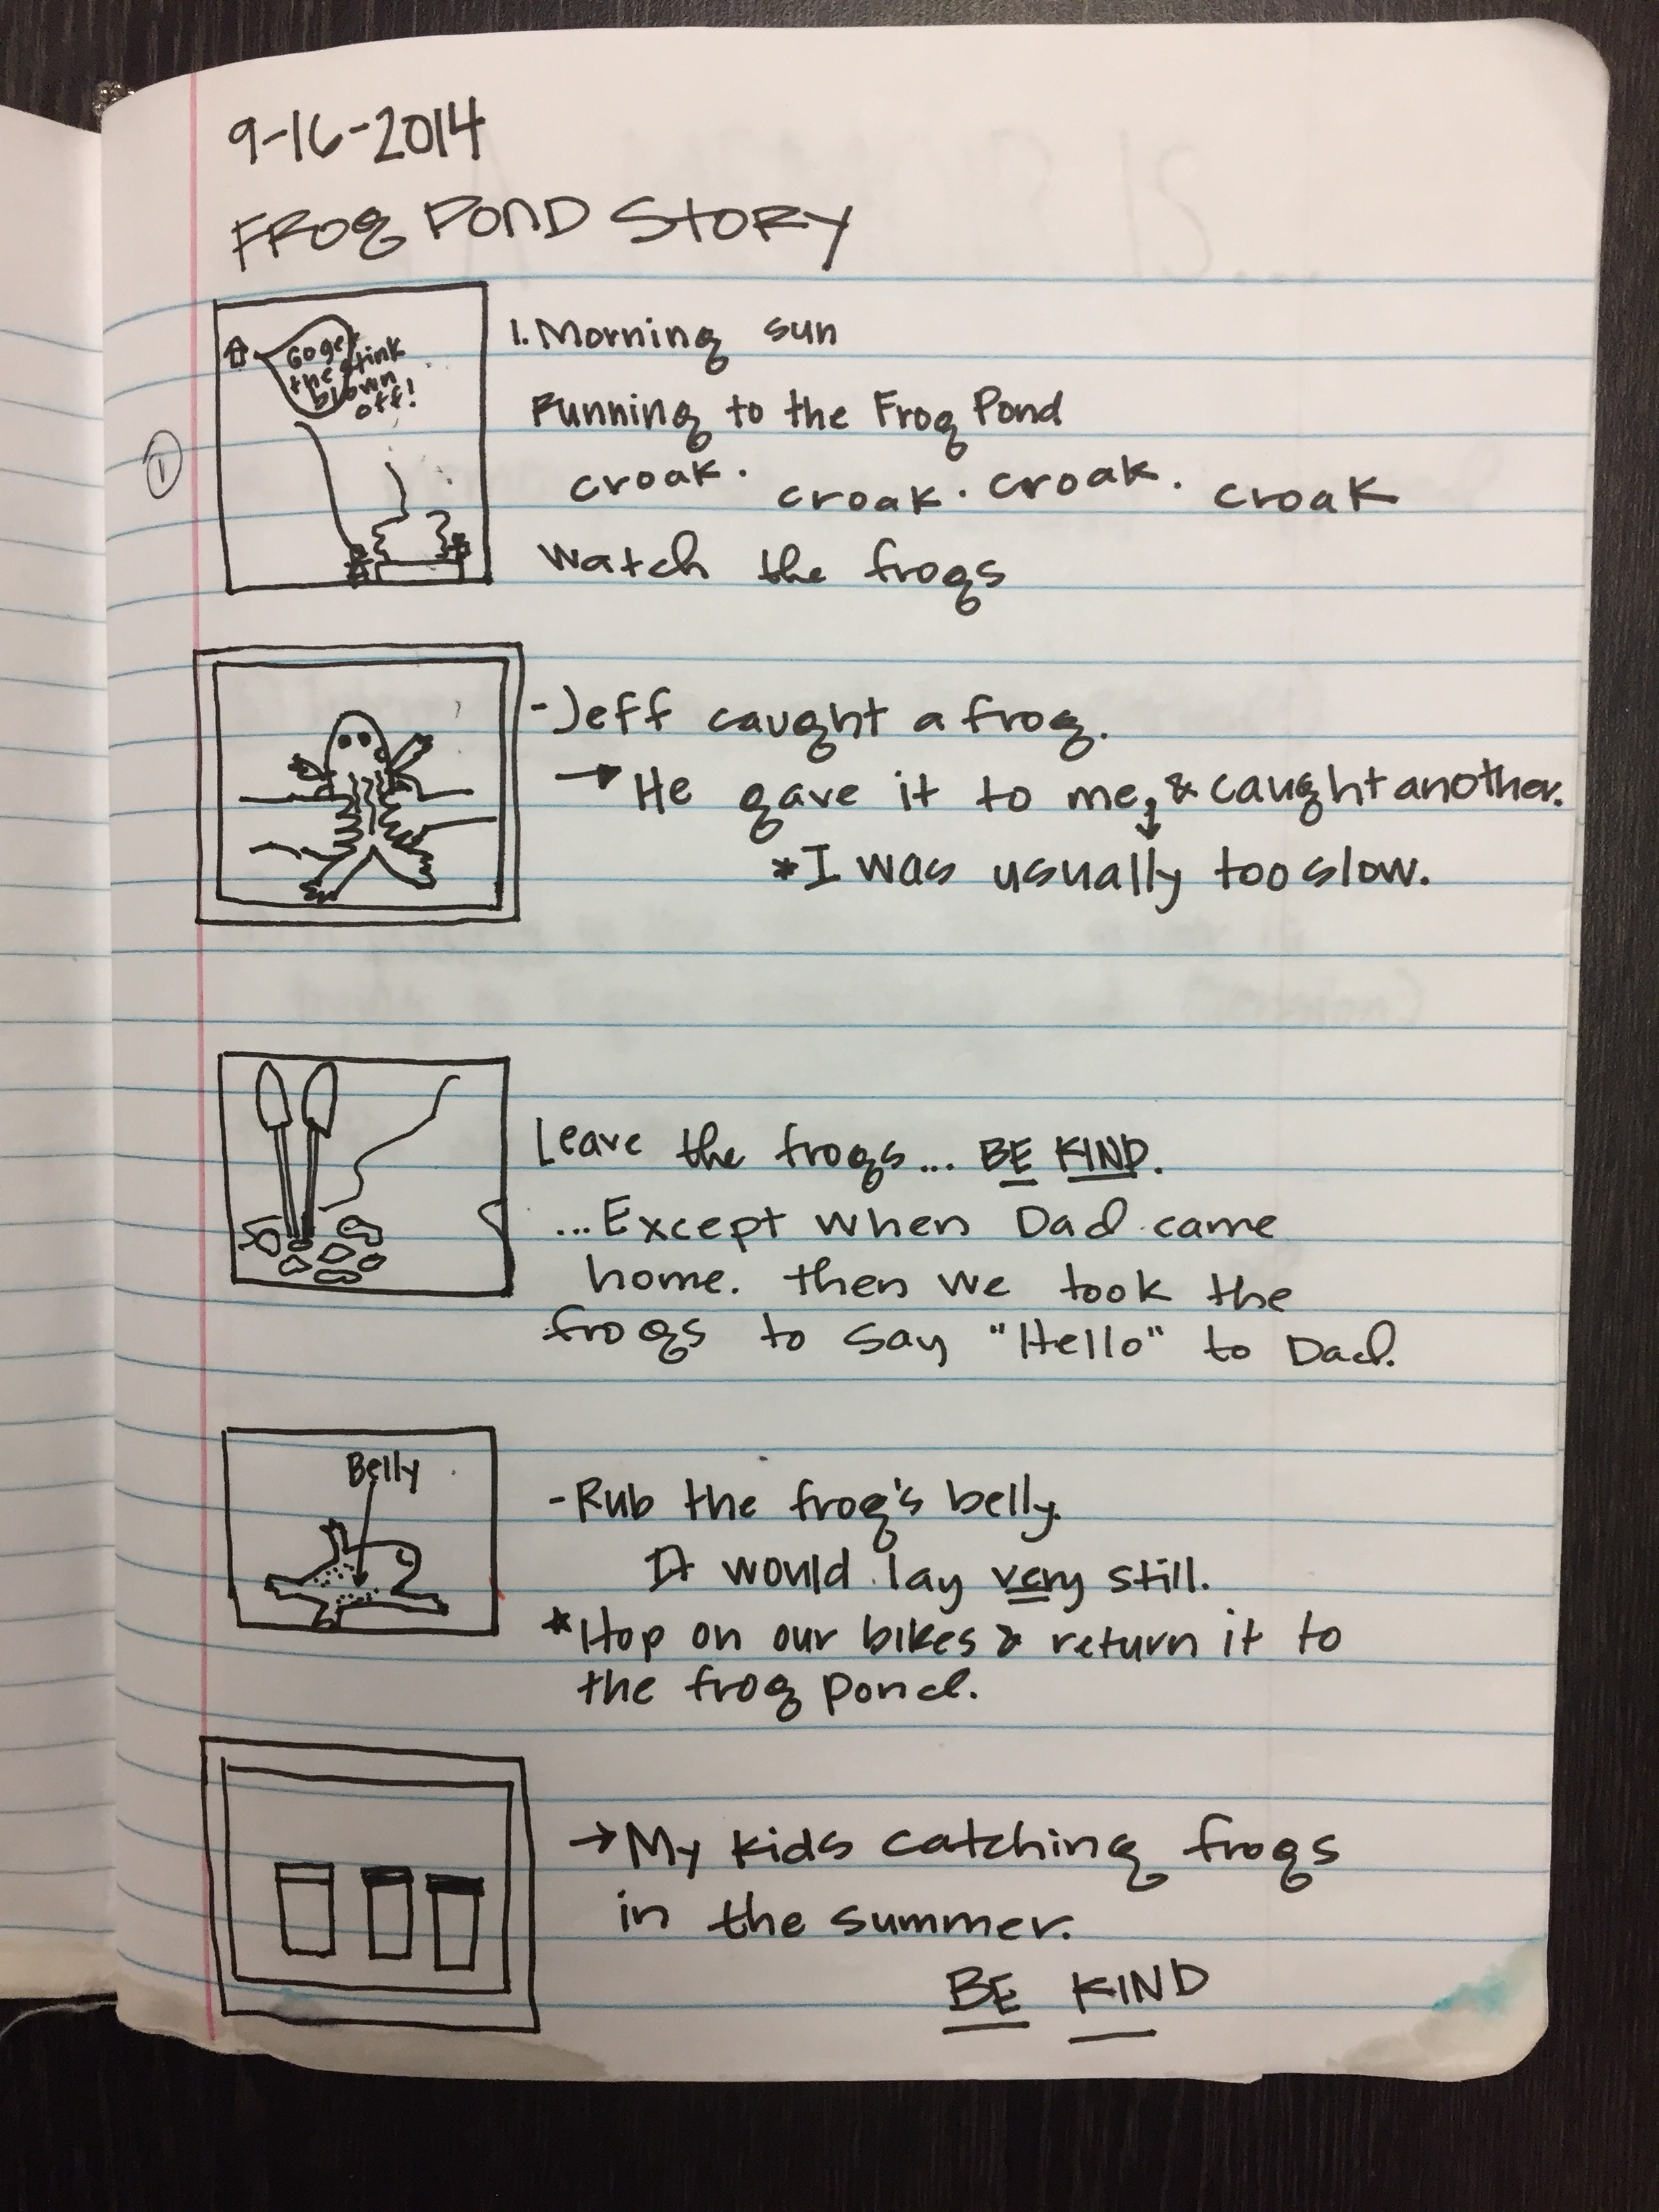 9-16-2014
FROG POND STORY
Go get
the stink
blown
off!
1
1. Morning sun
Running to the Frog Pond
croak. croak. croak. croak
Watch the frogs
-Jeff caught a frog.
→ He gave it to me, & caught another.
*I was usually too slow.
Leave the frogs... BE KIND.
...Except when Dad came
home. then we took the
frogs to say "Hello" to Dad.
Belly
-Rub the frog's belly.
It would lay very still.
*Hop on our bikes & return it to
the frog pond.
→ My kids catching frogs
in the summer.
BE KIND